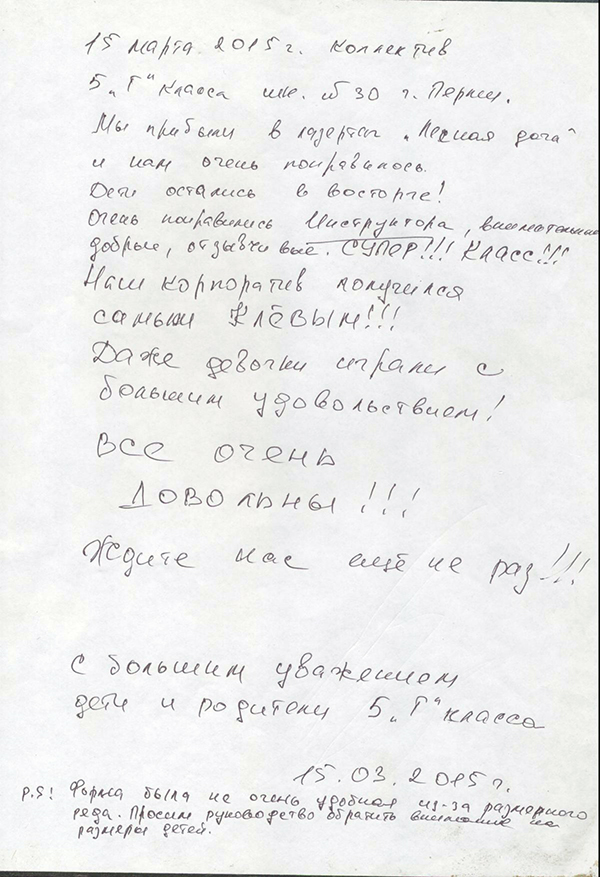 15 марта 2015 г. Коллектив
5 „Г“ класса шк. №30 г. Перми.
Мы прибыли в лазертаг „Лесная дача“
и нам очень понравилось.
Дети остались в восторге!
Очень понравились Инструктора, внимательные
добрые, отзывчивые. СУПЕР!!! Класс!!!
Наш корпоратив получился
самым КЛЁВЫМ!!!
Даже девочки играли с
большим удовольствием!
ВСЕ ОЧЕНЬ
ДОВОЛЬНЫ!!!
Ждите нас ещё не раз!!!
С большим уважением
дети и родители 5 „Г“ класса
15.03.2015г.
P.S! Форма была не очень удобная из-за размерного
ряда. Просим руководство обратить внимание на
размеры детей.